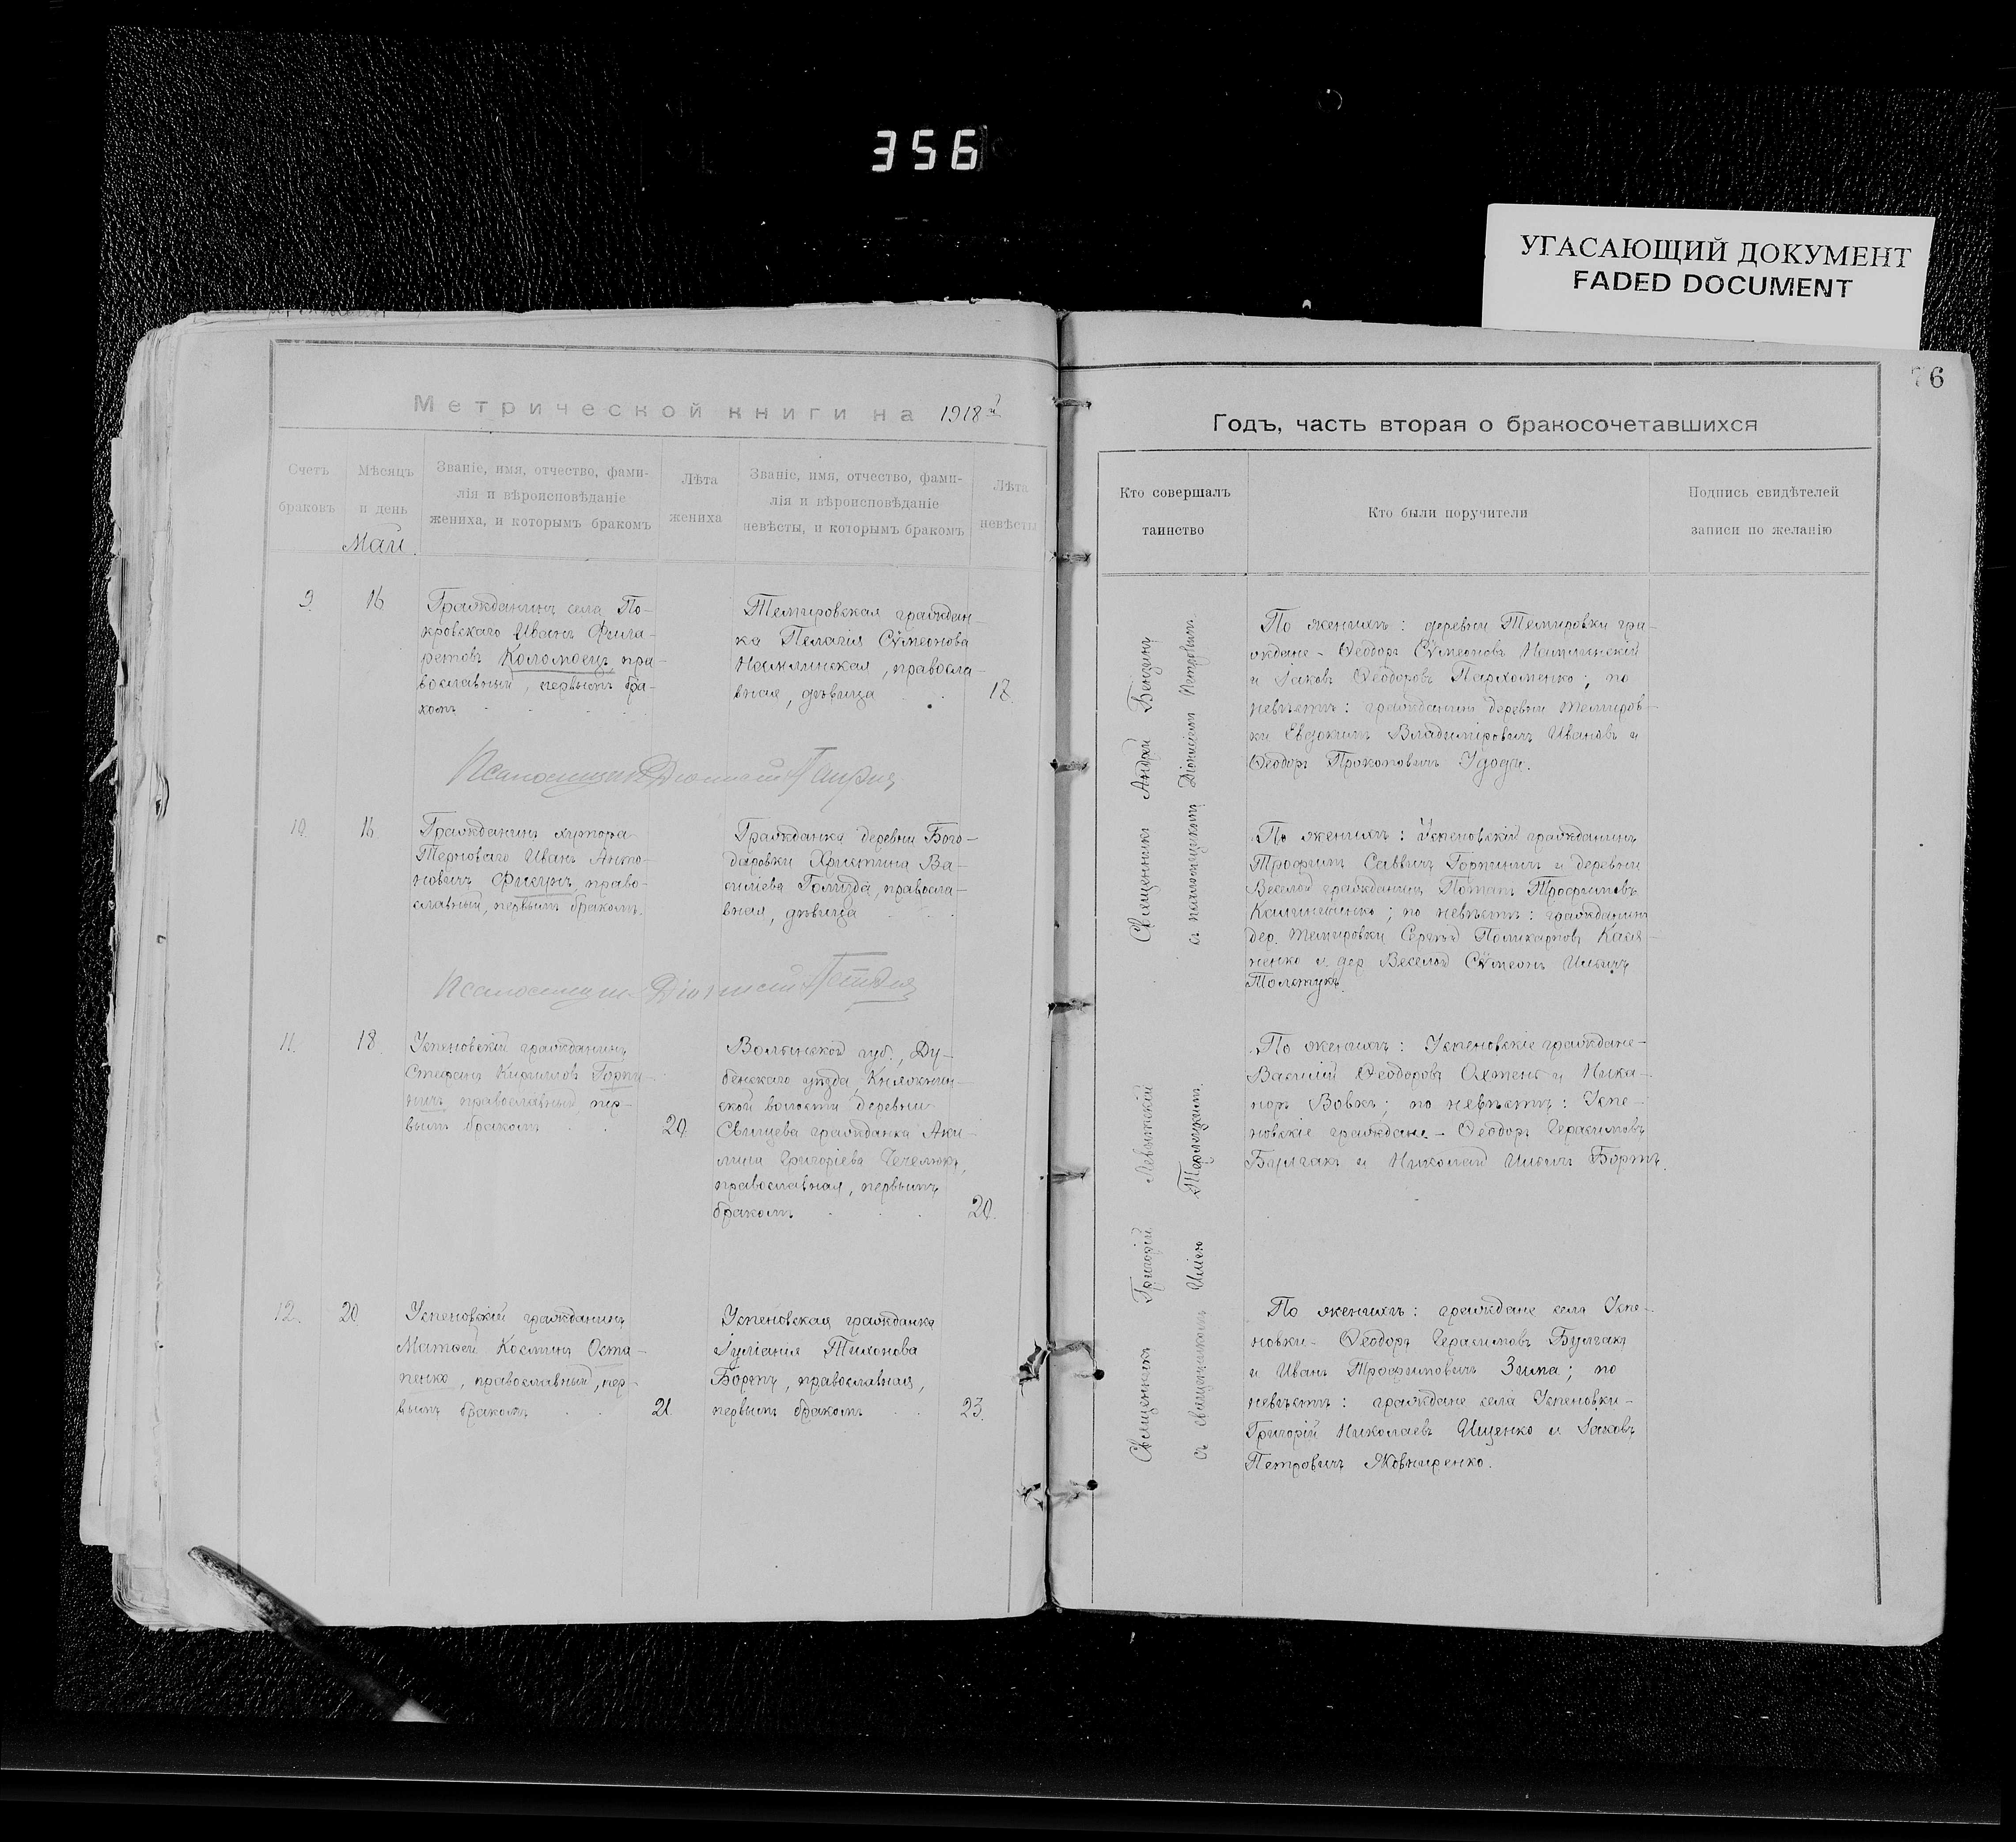 356
УГАСАЮЩИЙ ДОКУМЕНТ
FADED DOCUMENT
76
Метрической книги на 1918 й
Счетъ браковъ
Мѣсяцъ и день
Званіе, имя, отчество, фами-
лія и вѣроисповѣданіе
жениха, и которымъ бракомъ
Лѣта
жениха
Званіе, имя, отчество, фами-
лія и вѣроисповѣданіе
невѣсты, и которымъ бракомъ
Лѣта
невѣсты
Май.
9.
16
Гражданинъ села По-
кровскаго Иванъ Фила-
ретовъ Коломоецъ, пра-
вославный, первымъ бра-
комъ
Темировская граждан-
ка Пелагія Сѵмеонова
православ-
ная, дѣвица
18.
Псаломщикъ Діонисій
10.
16.
Гражданинъ хутора
Терноваго Иванъ Анто-
новичъ Фисунъ, право-
славный, первымъ бракомъ.
Гражданка деревни Бого-
даровки Христина Ва-
силіева Голизда, правосла-
вная, дѣвица
Псаломщикъ Діонисій
11.
18.
Успеновскій гражданинъ
Стефанъ Кирилловъ Горпи-
ничъ, православный, пер-
вымъ бракомъ
20.
Волынской губ., Ду-
бенскаго уѣзда, Княжнин-
ской волости деревни
Свищева гражданка Аки-
лина Григоріева
православная, первымъ
бракомъ
20.
12.
20.
Успеновскій гражданинъ
Матѳей Косминъ Оста-
пенко, православный, пер-
вымъ бракомъ
21.
Успеновская гражданка
Іуліанія Тихонова
Бортъ, православная,
первымъ бракомъ
23.
Годъ, часть вторая о бракосочетавшихся
Кто совершалъ
таинство
Кто были поручители
Подпись свидѣтелей
записи по желанію
Священникъ Андрей
съ псаломщикомъ Діонисіемъ
По женихѣ: деревни Темировки гра-
ждане - Ѳеодоръ Сѵмеоновъ
и Іаковъ Ѳеодоровъ Пархоменко; по
невѣстѣ: граждане деревни Темиров-
ки Евдокимъ Владиміровичъ Ивановъ и
Ѳеодоръ Прокоповичъ Удодъ.
По женихѣ: Успеновскій гражданинъ
Трофимъ Саввичъ Горпиничъ и деревни
Веселой гражданинъ Потапъ Трофимовъ
Калиниченко; по невѣстѣ: гражданинъ
дер. Темировки Сергѣй Поликарповъ Кася-
ненко и дер. Веселой Сѵмеонъ Ильичъ
Толстукъ.
Священникъ Григорій Левитскій
съ священникомъ Иліею Терлецкимъ.
По женихѣ: Успеновскіе граждане -
Василій Ѳеодоровъ Охтень и Ника-
норъ Вовкъ; по невѣстѣ: Успе-
новскіе граждане - Ѳеодоръ Герасимовъ
Булгакъ и Николай Ильичъ Бортъ.
По женихѣ: граждане села Успе-
новки - Ѳеодоръ Герасимовъ Булгакъ
и Иванъ Трофимовичъ Зима; по
невѣстѣ: граждане села Успеновки -
Григорій Николаевъ Ищенко и Іаковъ
Петровичъ Жовниренко.